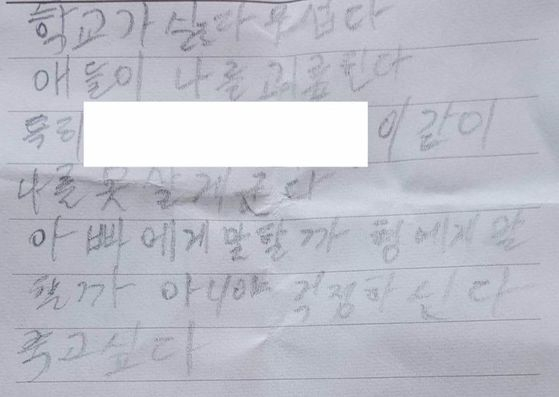 학교가 싫다 무섭다
애들이 나를 괴롭힌다
특히 이 같이
나를 못 살게 군다
아빠에게 말할까 형에게 말
할까 아니야 걱정하신다
죽고싶다